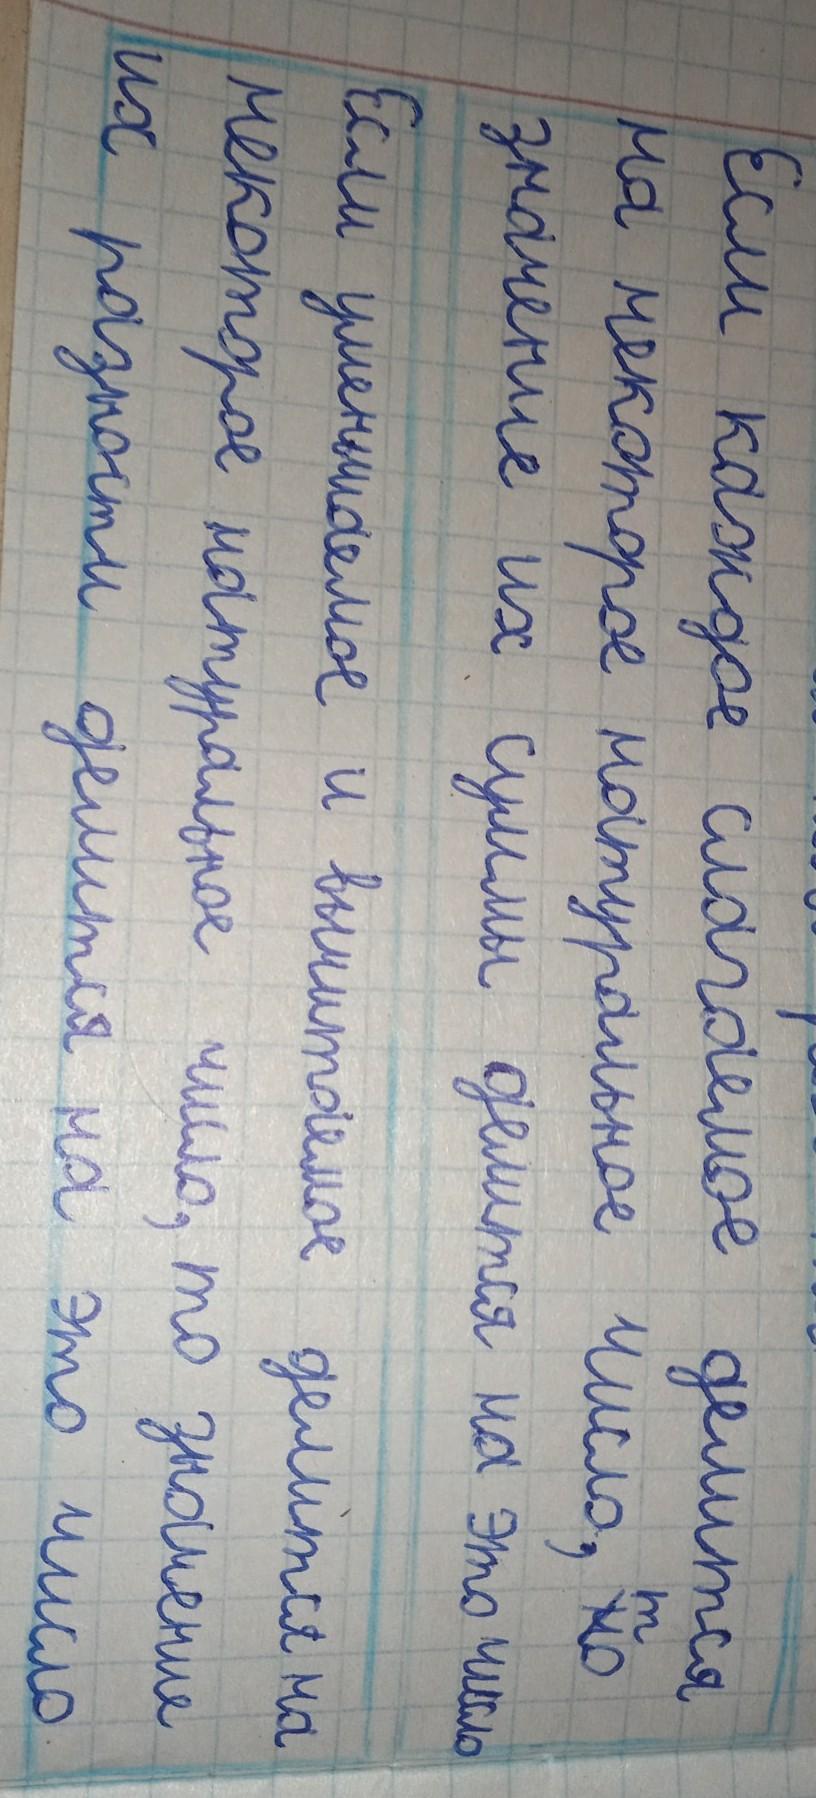 Если каждое слагаемое делится
на некоторое натуральное число, то
значение их суммы делится на это число
Если уменьшаемое и вычитаемое делится на
некоторое натуральное число, то значение
их разности делится на это число